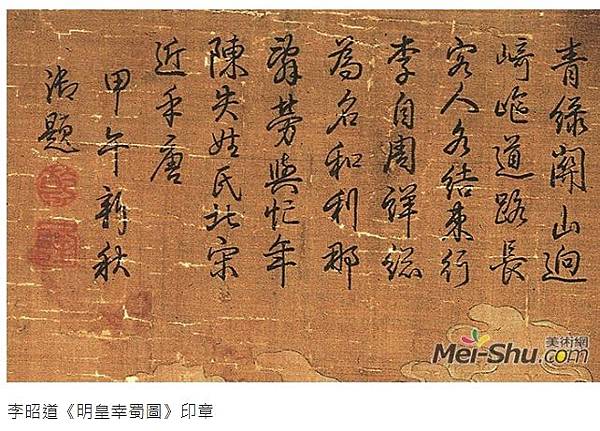 青綠關山迥
崎嶇道路長
客人各結束行
李自周詳總
為名和利那
辭勞與忙年
陳失姓氏北宋
近乎唐
甲午新秋
御題
美術網
Mei-Shu.com
李昭道《明皇幸蜀圖》印章